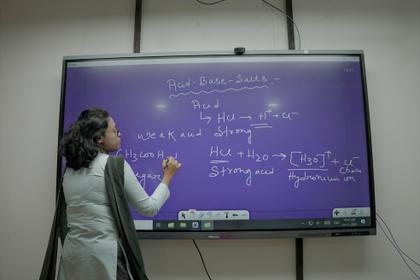 Acid-Base-Salts :-
Acid
↳ HCl → H⁺ + Cl⁻
weak acid Strong
CH₃COOH HCl + H₂O → [H₃O]⁺ + Cl⁻
Strong acid Hydronium ion